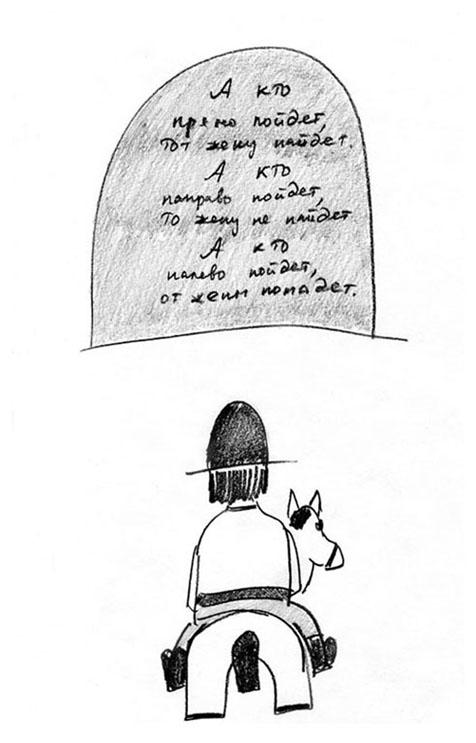 А кто
прямо пойдет,
тот жену найдет.
А кто
направо пойдет,
То жену не найдет
А кто
налево пойдет,
от жены попадет.